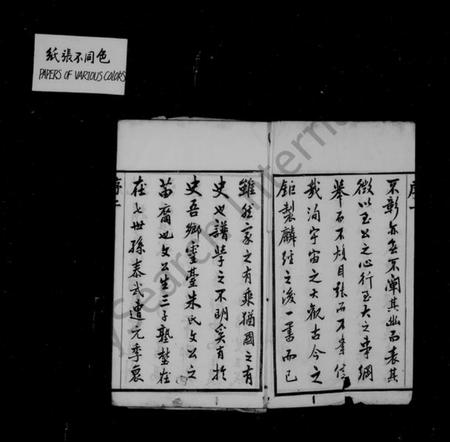 紙張不同色
PAPERS OF VARIOUS COLORS
序一
不彰亦無不闡其幽而表其
微以至公之心行至大之事綱
舉而不煩目張而不羣信
哉洵宇宙之大觀古今之
鉅製麟經之後一書而已
雖然家之有乘猶國之有
史也譜學之不明奚有於
史吾鄉靈臺朱氏文公之
苗裔也文公生三子塾埜在
在七世孫泰武遭元季衰
序二
My Search International